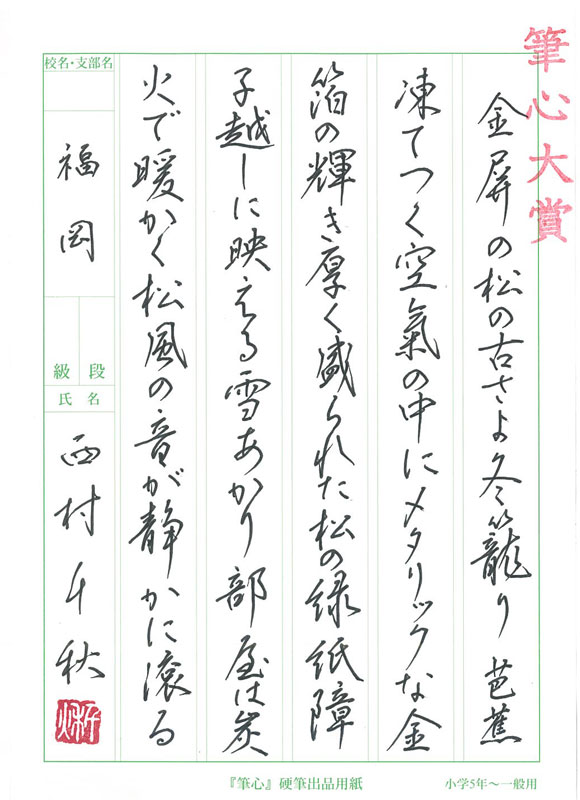 筆心大賞
金屏の松の古さよ冬籠り 芭蕉
凍てつく空氣の中にメタリックな金
箔の輝き厚く盛られた松の緑 紙障
子越しに映える雪あかり 部屋は炭
火で暖かく松風の音が静かに滾る
校名・支部名
福岡
級 段
氏名
西村千秋
『筆心』硬筆出品用紙
小学5年～一般用